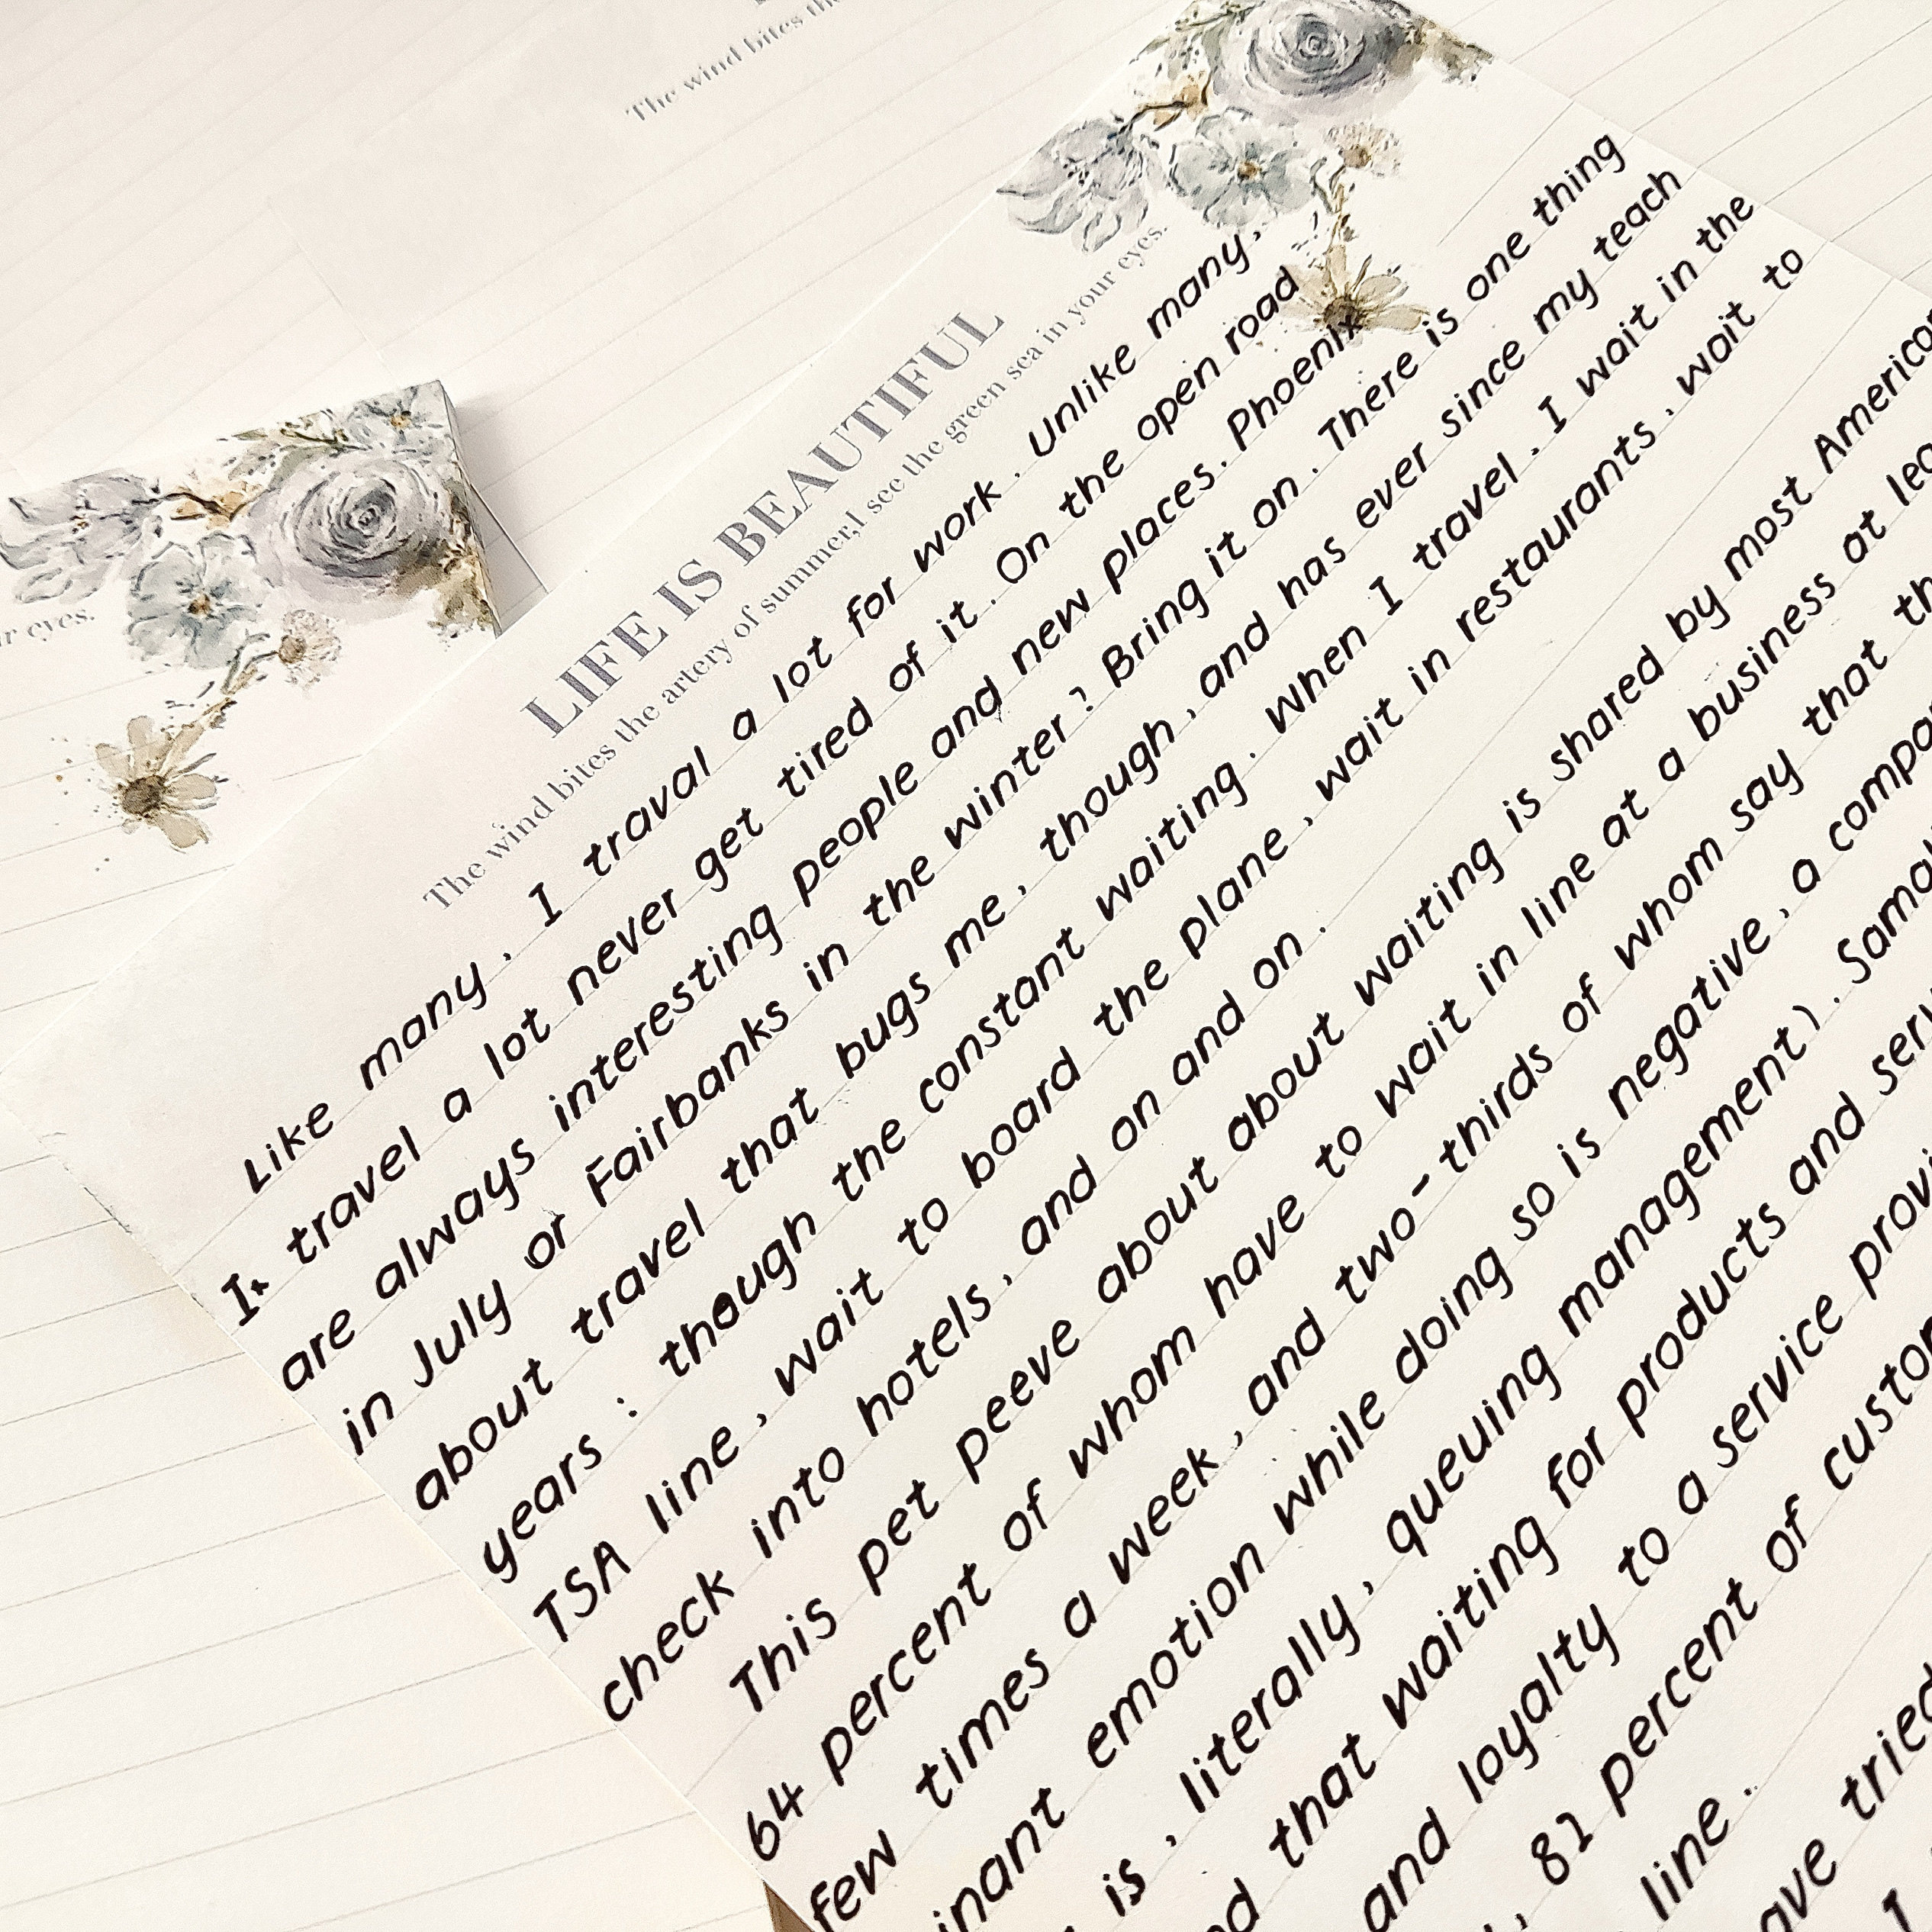 The wind bites th
r eyes.
LIFE IS BEAUTIFUL
The wind bites the artery of summer,I see the green sea in your eyes.
Like many , I traval a lot for work . Unlike many ,
I travel a lot never get tired of it . On the open road
are always interesting people and new places . Phoenix
in July or Fairbanks in the winter ? Bring it on . There is one thing
about travel that bugs me , though , and has ever since my teach
years : though the constant waiting . When I travel , I wait in the
TSA line , wait to board the plane , wait in restaurants , wait to
check into hotels , and on and on .
This pet peeve about about waiting is shared by most America
64 percent of whom have to wait in line at a business at lea
few times a week , and two-thirds of whom say that th
inant emotion while doing so is negative , a compa
is , literally , queuing management ) . Samal
d that waiting for products and serv
and loyalty to a service provi
, 81 percent of custo
line .
ave tried
I